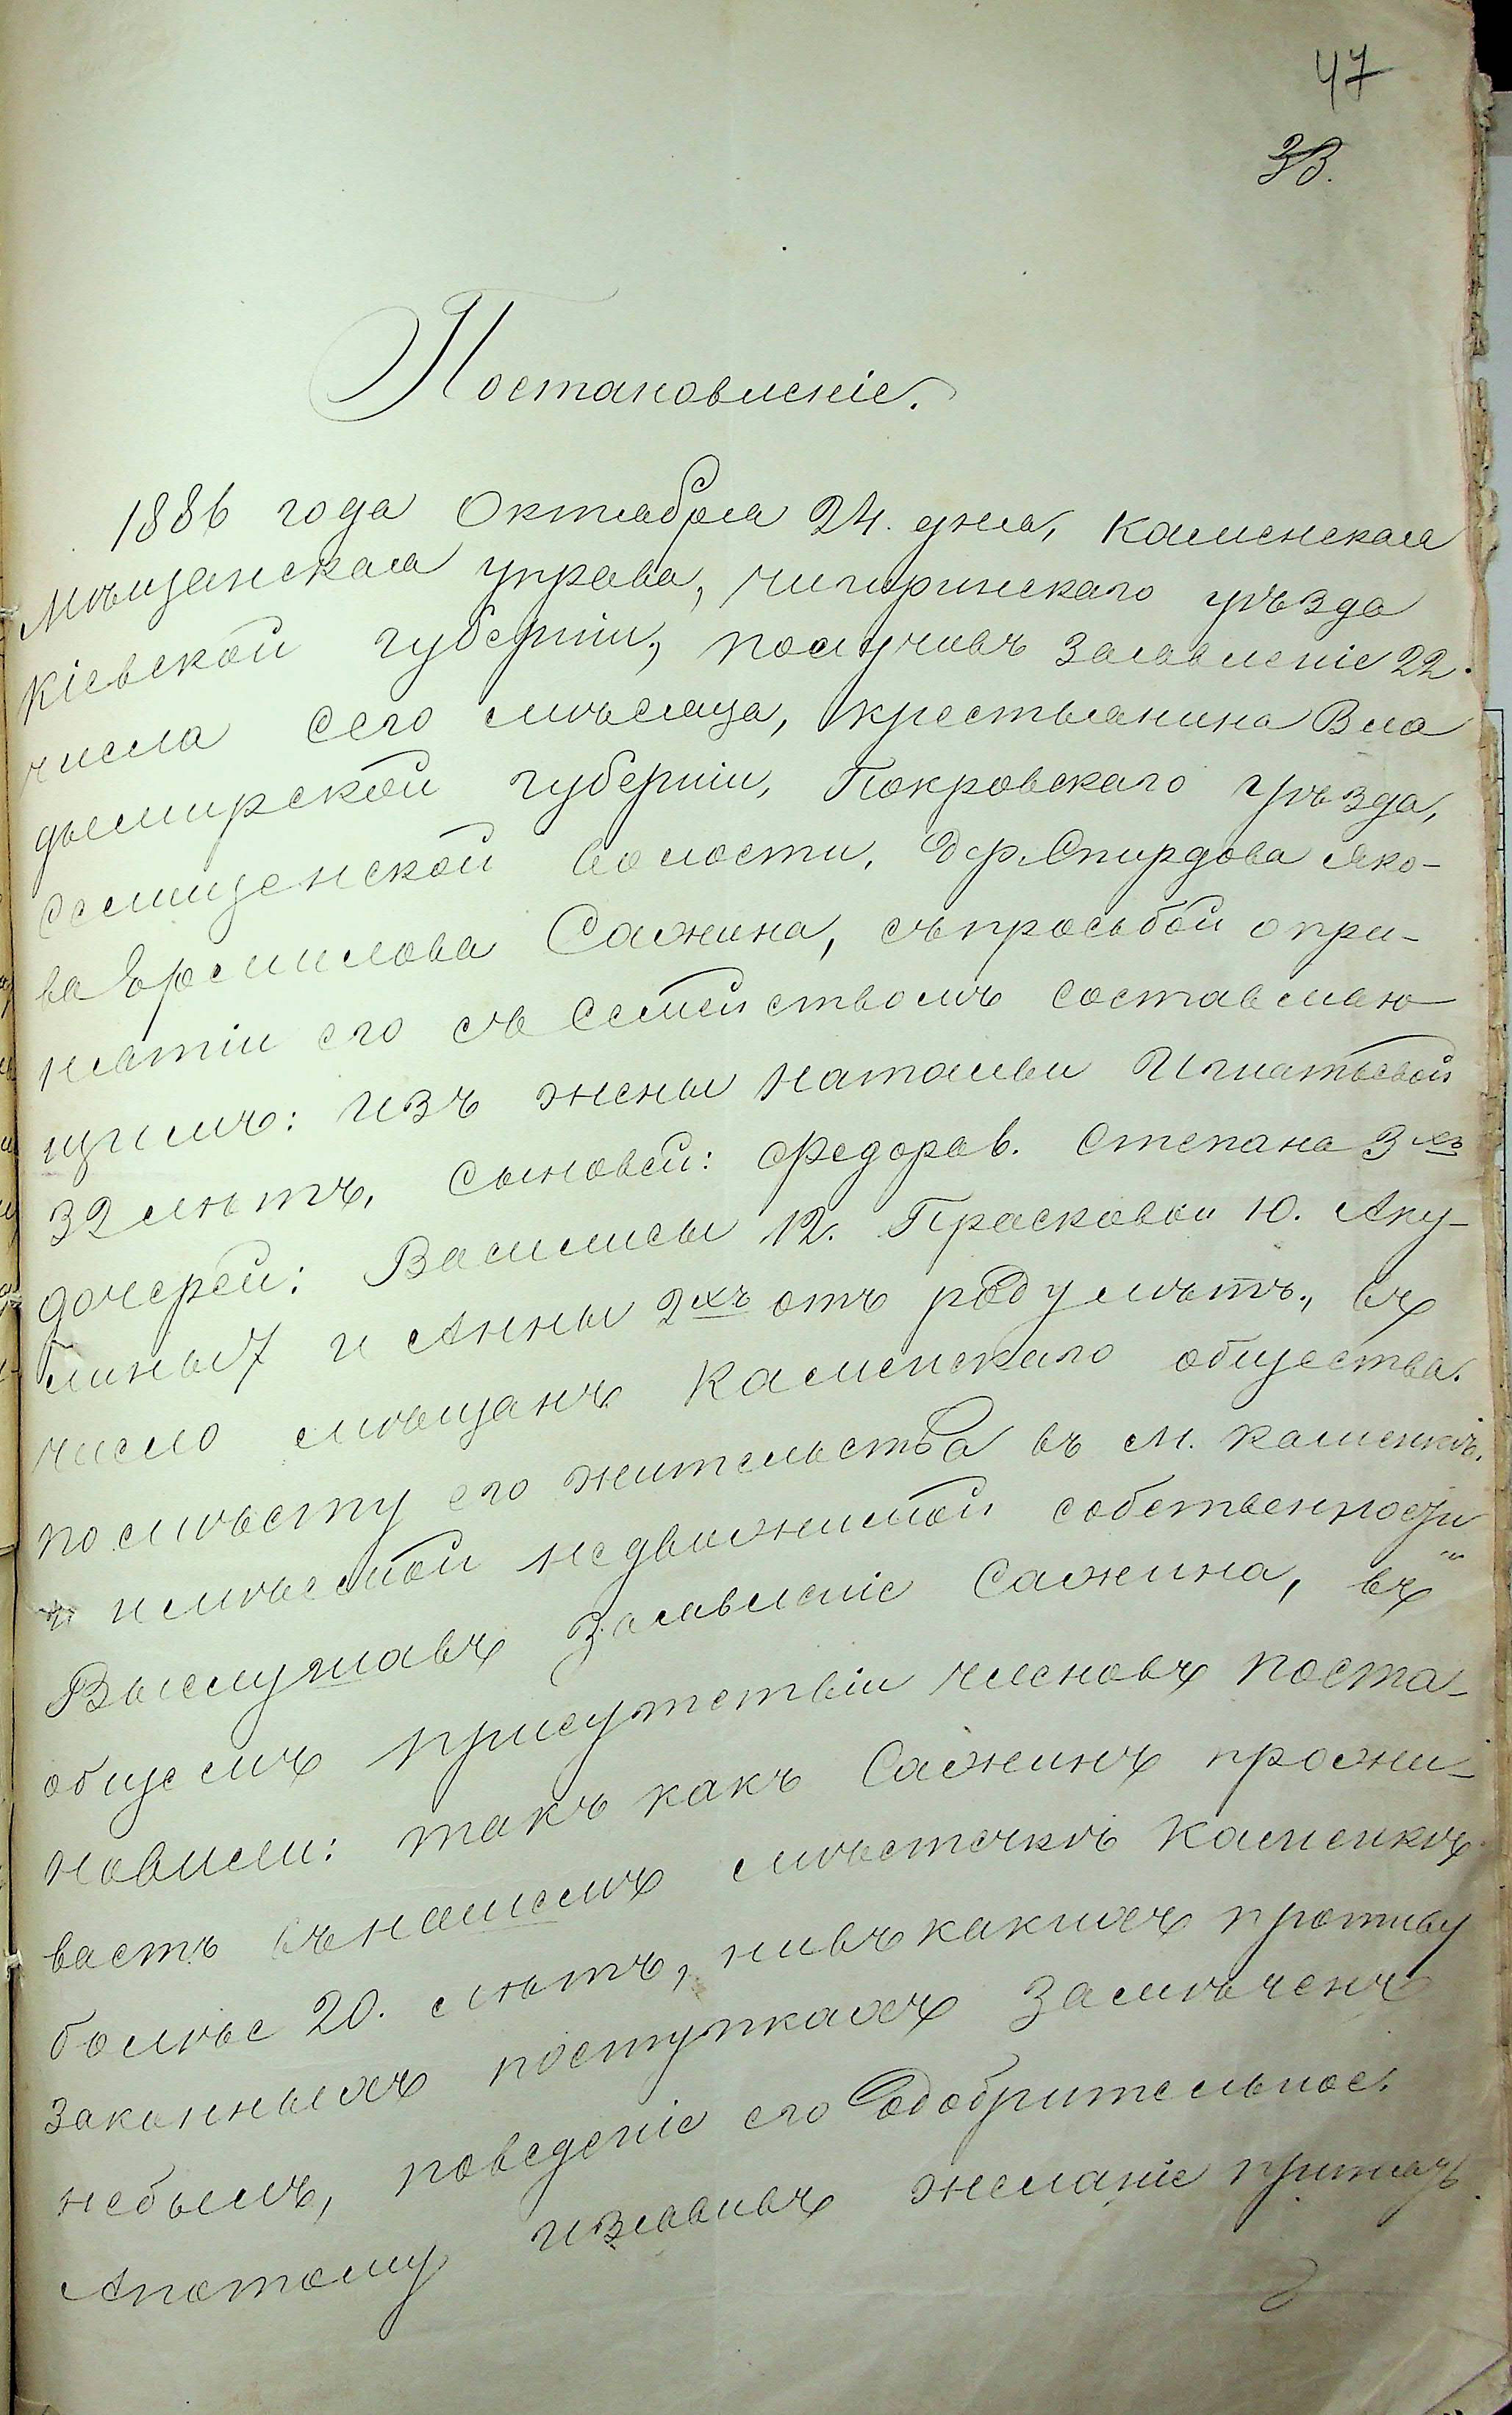 47
33.
Постановленіе.
1886 года Октября 24. дня, Каменская
Мѣщанская управа, чигиринскаго уѣзда
Кіевской губерніи, получивъ заявленіе 22.
числа сего мѣсяца, крестьянина Вла
дымирской губерніи, Покровскаго уѣзда,
Селищенской волости, Дер. Спирдова Яко-
ва Ермилова Сажина, съ просьбой о при-
нятіи его съ семействомъ составляю
щимъ: изъ жены Натальи Игнатьевой
32 лѣтъ, сыновей: Федора 6. Степана 3хъ
дочерей: Василисы 12. Прасковьи 10. Аку-
лины 7 и Анны 2хъ отъ роду лѣтъ., въ
число мѣщанъ Каменскаго общества.
по мѣсту его жительства въ м. Каменкѣ.
и имѣемой недвижимой собственности
Выслушавъ заявленіе Сажина, въ
общемъ присутствіи членовъ поста-
новили: такъ какъ Сажинъ прожи-
ваетъ въ нашемъ мѣстечкѣ Каменкѣ
болѣе 20. лѣтъ, ни въ какихъ противу
законныхъ поступкахъ замѣченъ
небылъ, поведеніе его Одобрительное.
Апотому изъявивъ желаніе принять